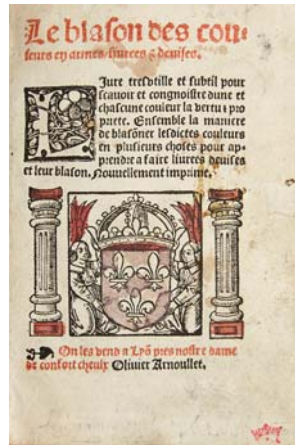 Le blason des cou-
leurs en armes, livrees & devises.
Livre tresutile et subtil pour
scavoir et congnoistre dune et
chascune couleur la vertu & pro
priete. Ensemble la maniere
de blasonner lesdictes couleurs
en plusieurs choses pour ap-
prendre a faire livrees devises
et leur blason. Nouvellement imprime.
On les vend a Lyõ pres nostre dame
de confort cheulx Olivier Arnoullet.